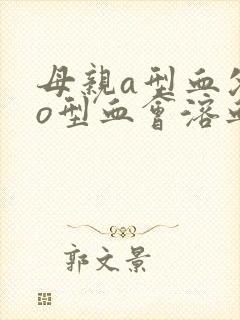 母親a型血
o型血會溶
郭文景